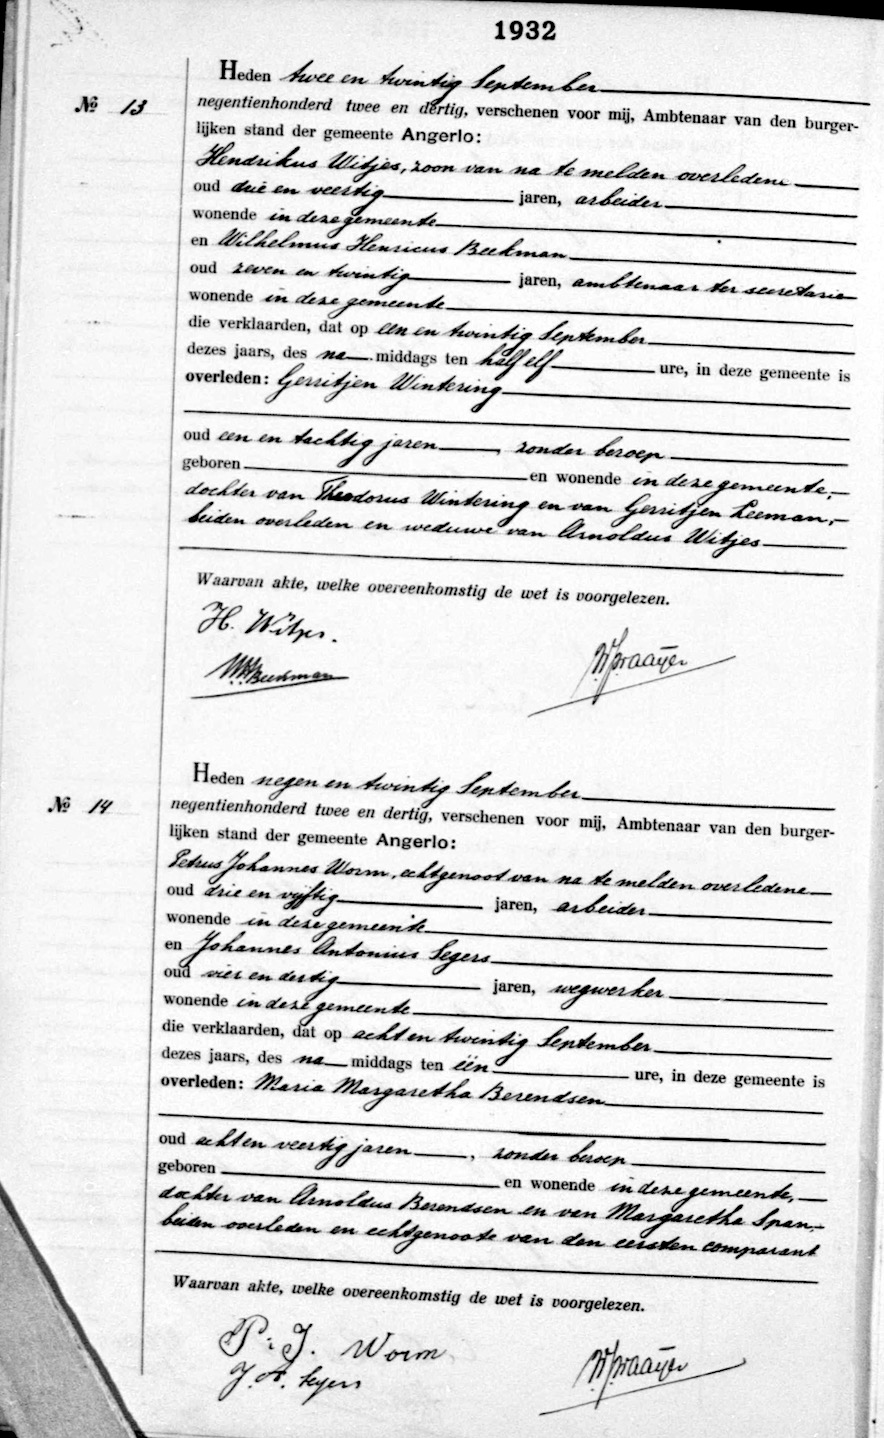 1932
Heden twee en twintig September
№ 13
negentienhonderd twee en dertig, verschenen voor mij, Ambtenaar van den burger-
lijken stand der gemeente Angerlo:
Hendrikus Witjes, zoon van na te melden overledene
oud drie en veertig jaren, arbeider
wonende in deze gemeente
en Wilhelmus Henricus Beekman
oud zeven en twintig jaren, ambtenaar ter secretarie
wonende in deze gemeente
die verklaarden, dat op een en twintig September
dezes jaars, des na middags ten half elf ure, in deze gemeente is
overleden: Gerritjen Wintering
oud een en tachtig jaren, zonder beroep
geboren en wonende in deze gemeente,
dochter van Theodorus Wintering en van Gerritjen Leeman,
beiden overleden en weduwe van Arnoldus Witjes
Waarvan akte, welke overeenkomstig de wet is voorgelezen.
H. Witjes.
WHBeekman
Heden negen en twintig September
№ 14
negentienhonderd twee en dertig, verschenen voor mij, Ambtenaar van den burger-
lijken stand der gemeente Angerlo:
Petrus Johannes Worm, echtgenoot van na te melden overledene
oud drie en vijftig jaren, arbeider
wonende in deze gemeente
en Johannes Antonius Segers
oud vier en dertig jaren, wegwerker
wonende in deze gemeente
die verklaarden, dat op acht en twintig September
dezes jaars, des na middags ten één ure, in deze gemeente is
overleden: Maria Margaretha Berendsen
oud acht en veertig jaren, zonder beroep
geboren en wonende in deze gemeente,
dochter van Arnoldus Berendsen en van Margaretha Span,
beiden overleden en echtgenoote van den eersten comparant
Waarvan akte, welke overeenkomstig de wet is voorgelezen.
P. J. Worm
J. A. Segers